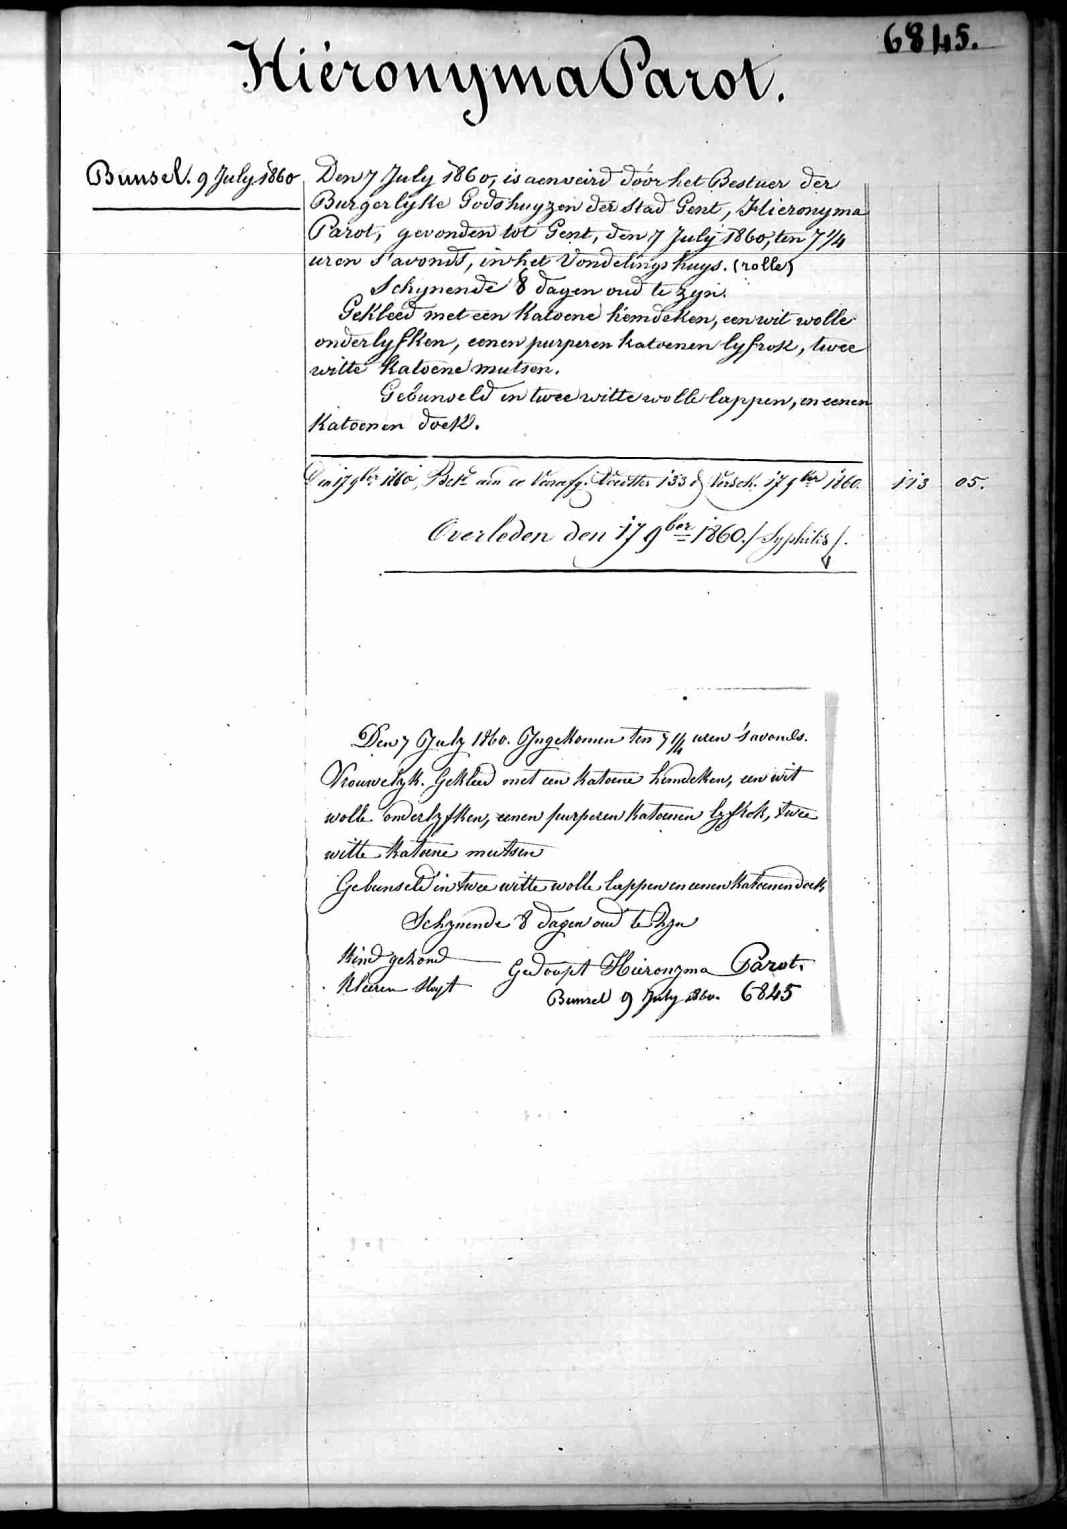 6845.
Hiéronyma Parot.
Bunsel. 9 July 1860
Den 7 July 1860, is aenveird door het Bestuer der
Burgerlyke Godshuyzen der Stad Gent, Hieronyma
Parot, gevonden tot Gent, den 7 July 1860, ten 7 1/4
uren s'avonds, in het Vondelingshuys. (rolle)
Schynende 8 dagen oud te zyn.
Gekleed met een katoene hemdeken, een wit wolle
onderlyfken, eenen purperen katoenen lyfrok, twee
witte katoene mutsen.
Gebunseld in twee witte wolle lappen, en eenen
katoenen doek.
Den 17 9ber 1860, 17 9ber 1860. 113 05.
Overleden den 17 9ber 1860. / Syphilis /.
Den 7 July 1860. Ingekomen ten 7 1/4 uren s'avonds.
Vrouwelyk. Gekleed met een katoene hemdeken, een wit
wolle onderlyfken, eenen purperen katoenen lyfrok, twee
witte katoene mutsen
Gebunseld in twee witte wolle lappen en eenen katoenen doek,
Schynende 8 dagen oud te zyn
Kind gezond
Gedoopt Hieronyma Parot.
Kleeren
Bunsel 9 July 1860. 6845